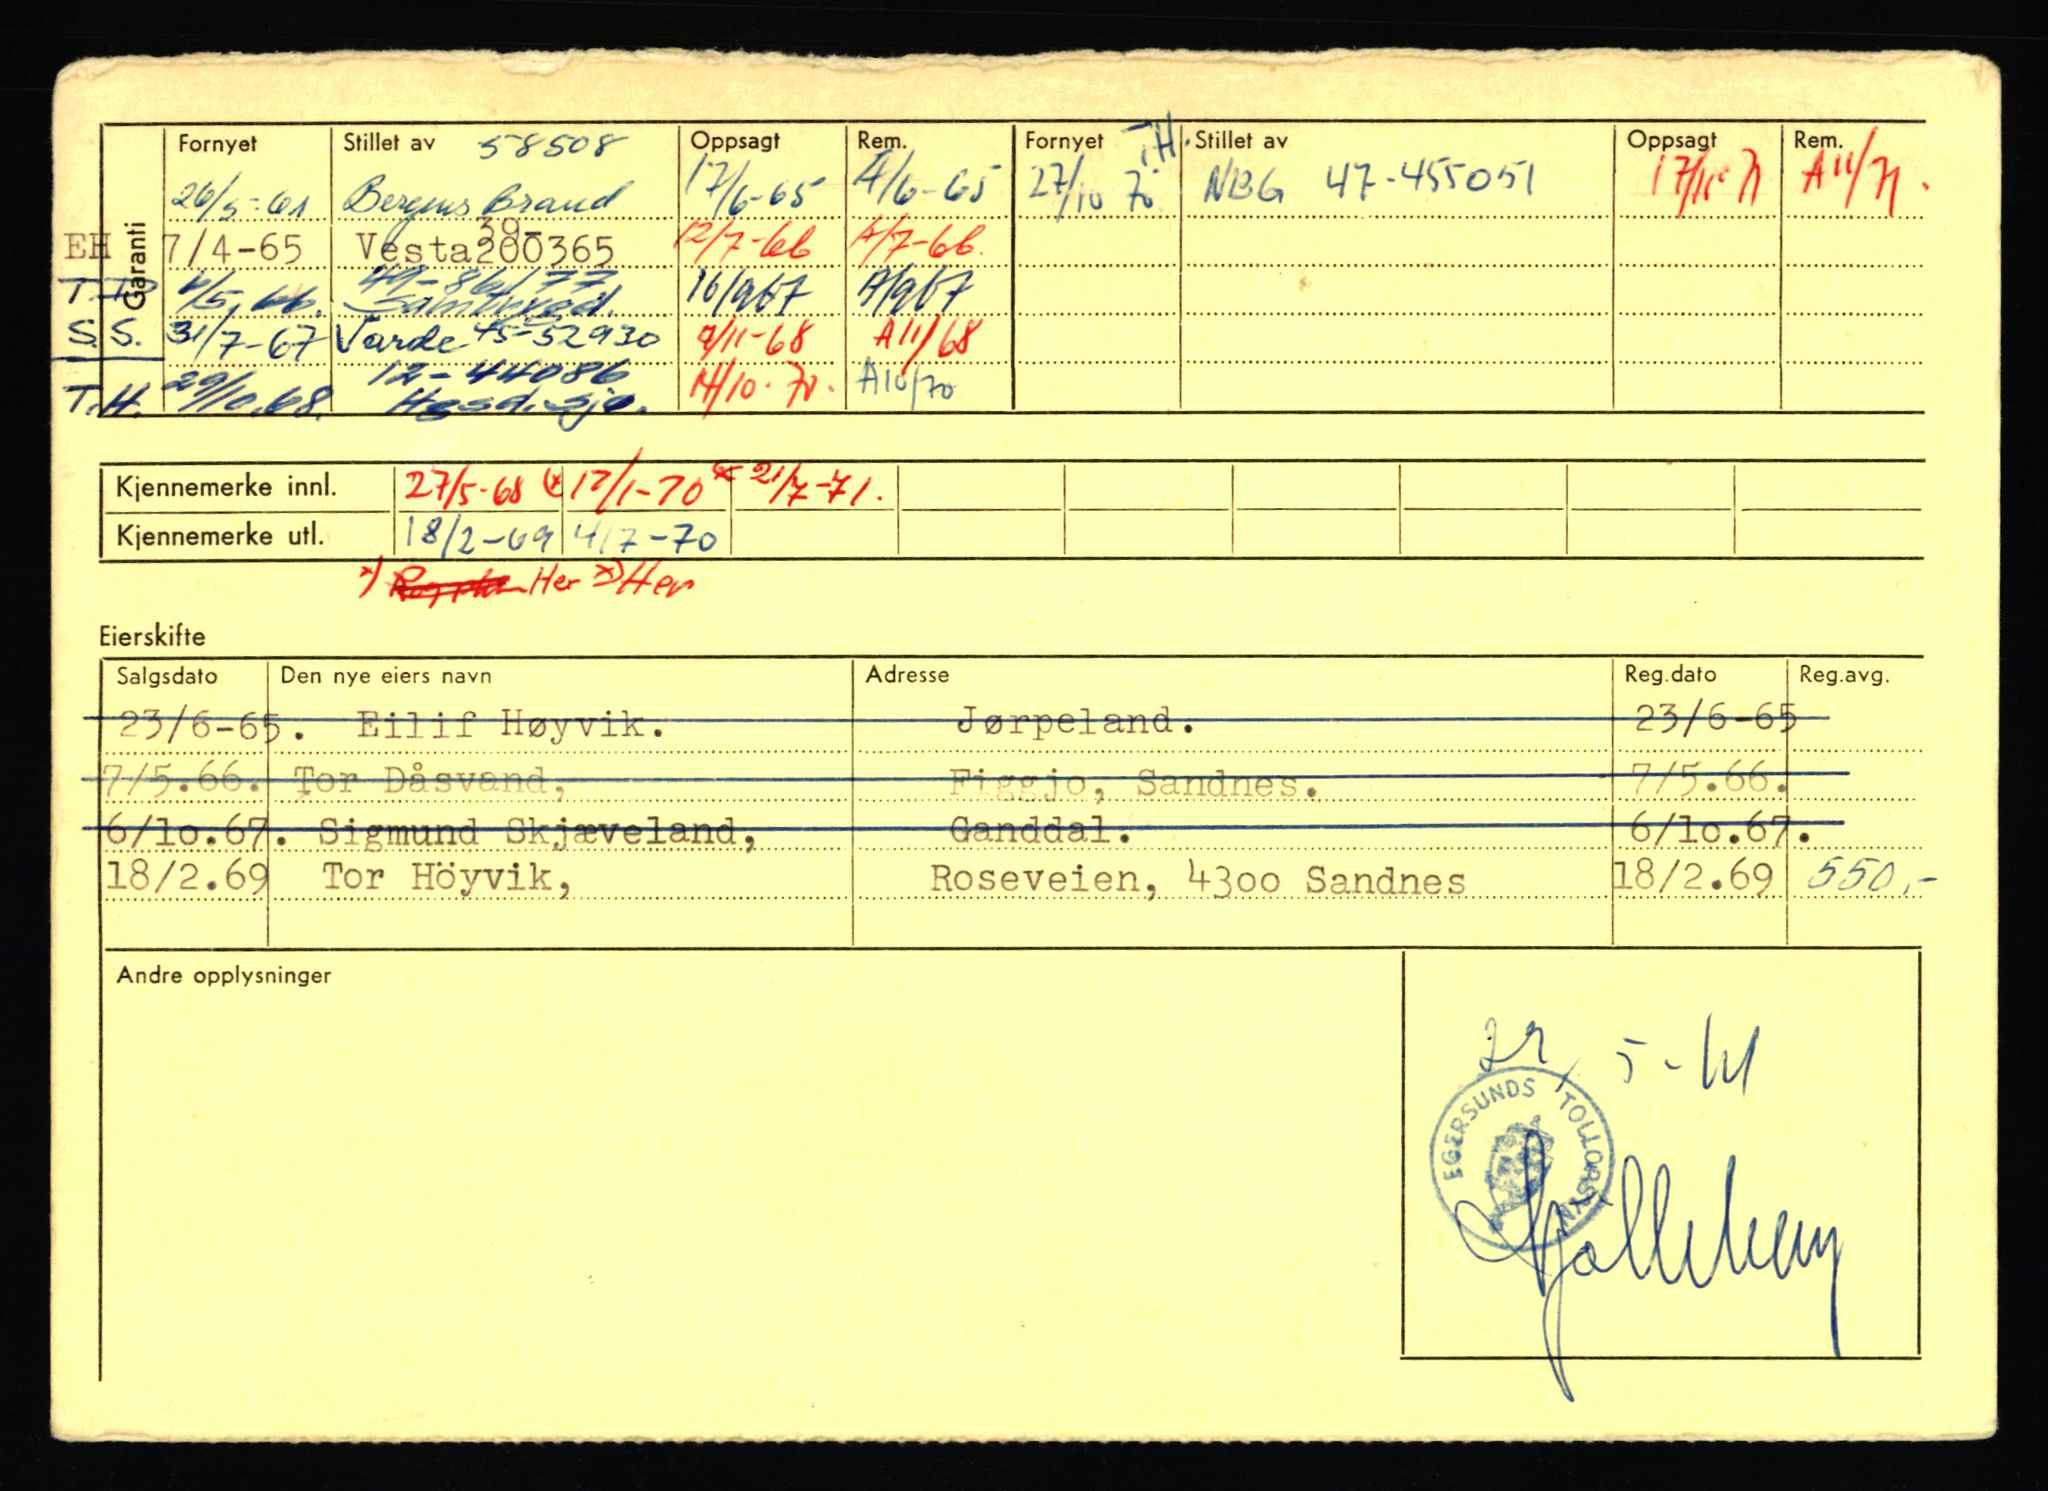 Garanti
Fornyet Stillet av 58508 Oppsagt Rem. Fornyet T.H. Stillet av Oppsagt Rem.
26/5-61 Bergens Brand 17/6-65 A/6-65 27/10 70 NBG 47-455051 17/11-71 A11/71.
EH 7/4-65 Vesta 39-200365 12/7-66 A/7-66.
/5.66. 49-86177 Samtrygd. 16/9 67 A/9 67
S.S. 31/7-67 Varde 45-52930 9/11-68 A11/68
T.H. 29/10.68. 12-44086 Hasd. Sjø. 14/10.70. A10/70
Kjennemerke innl. 27/5-68 (x 12/1-70 x 21/7-71.
Kjennemerke utl. 18/2-69 4/7-70
x) Her x) Her
Eierskifte
Salgsdato Den nye eiers navn Adresse Reg.dato Reg.avg.
23/6-65. Eilif Høyvik. Jørpeland. 23/6-65
7/5.66. Tor Dåsvand, Figgjo, Sandnes. 7/5.66.
6/10.67. Sigmund Skjæveland, Ganddal. 6/10.67.
18/2.69 Tor Höyvik, Roseveien, 4300 Sandnes 18/2.69 550,-
Andre opplysninger
5-61
EGERSUNDS TOLLOPSYN